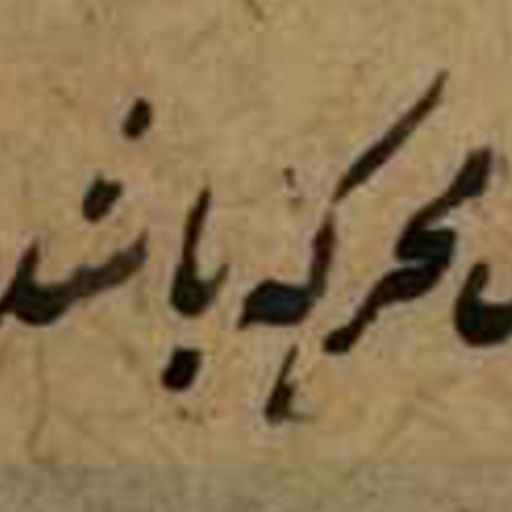 هر که باشد